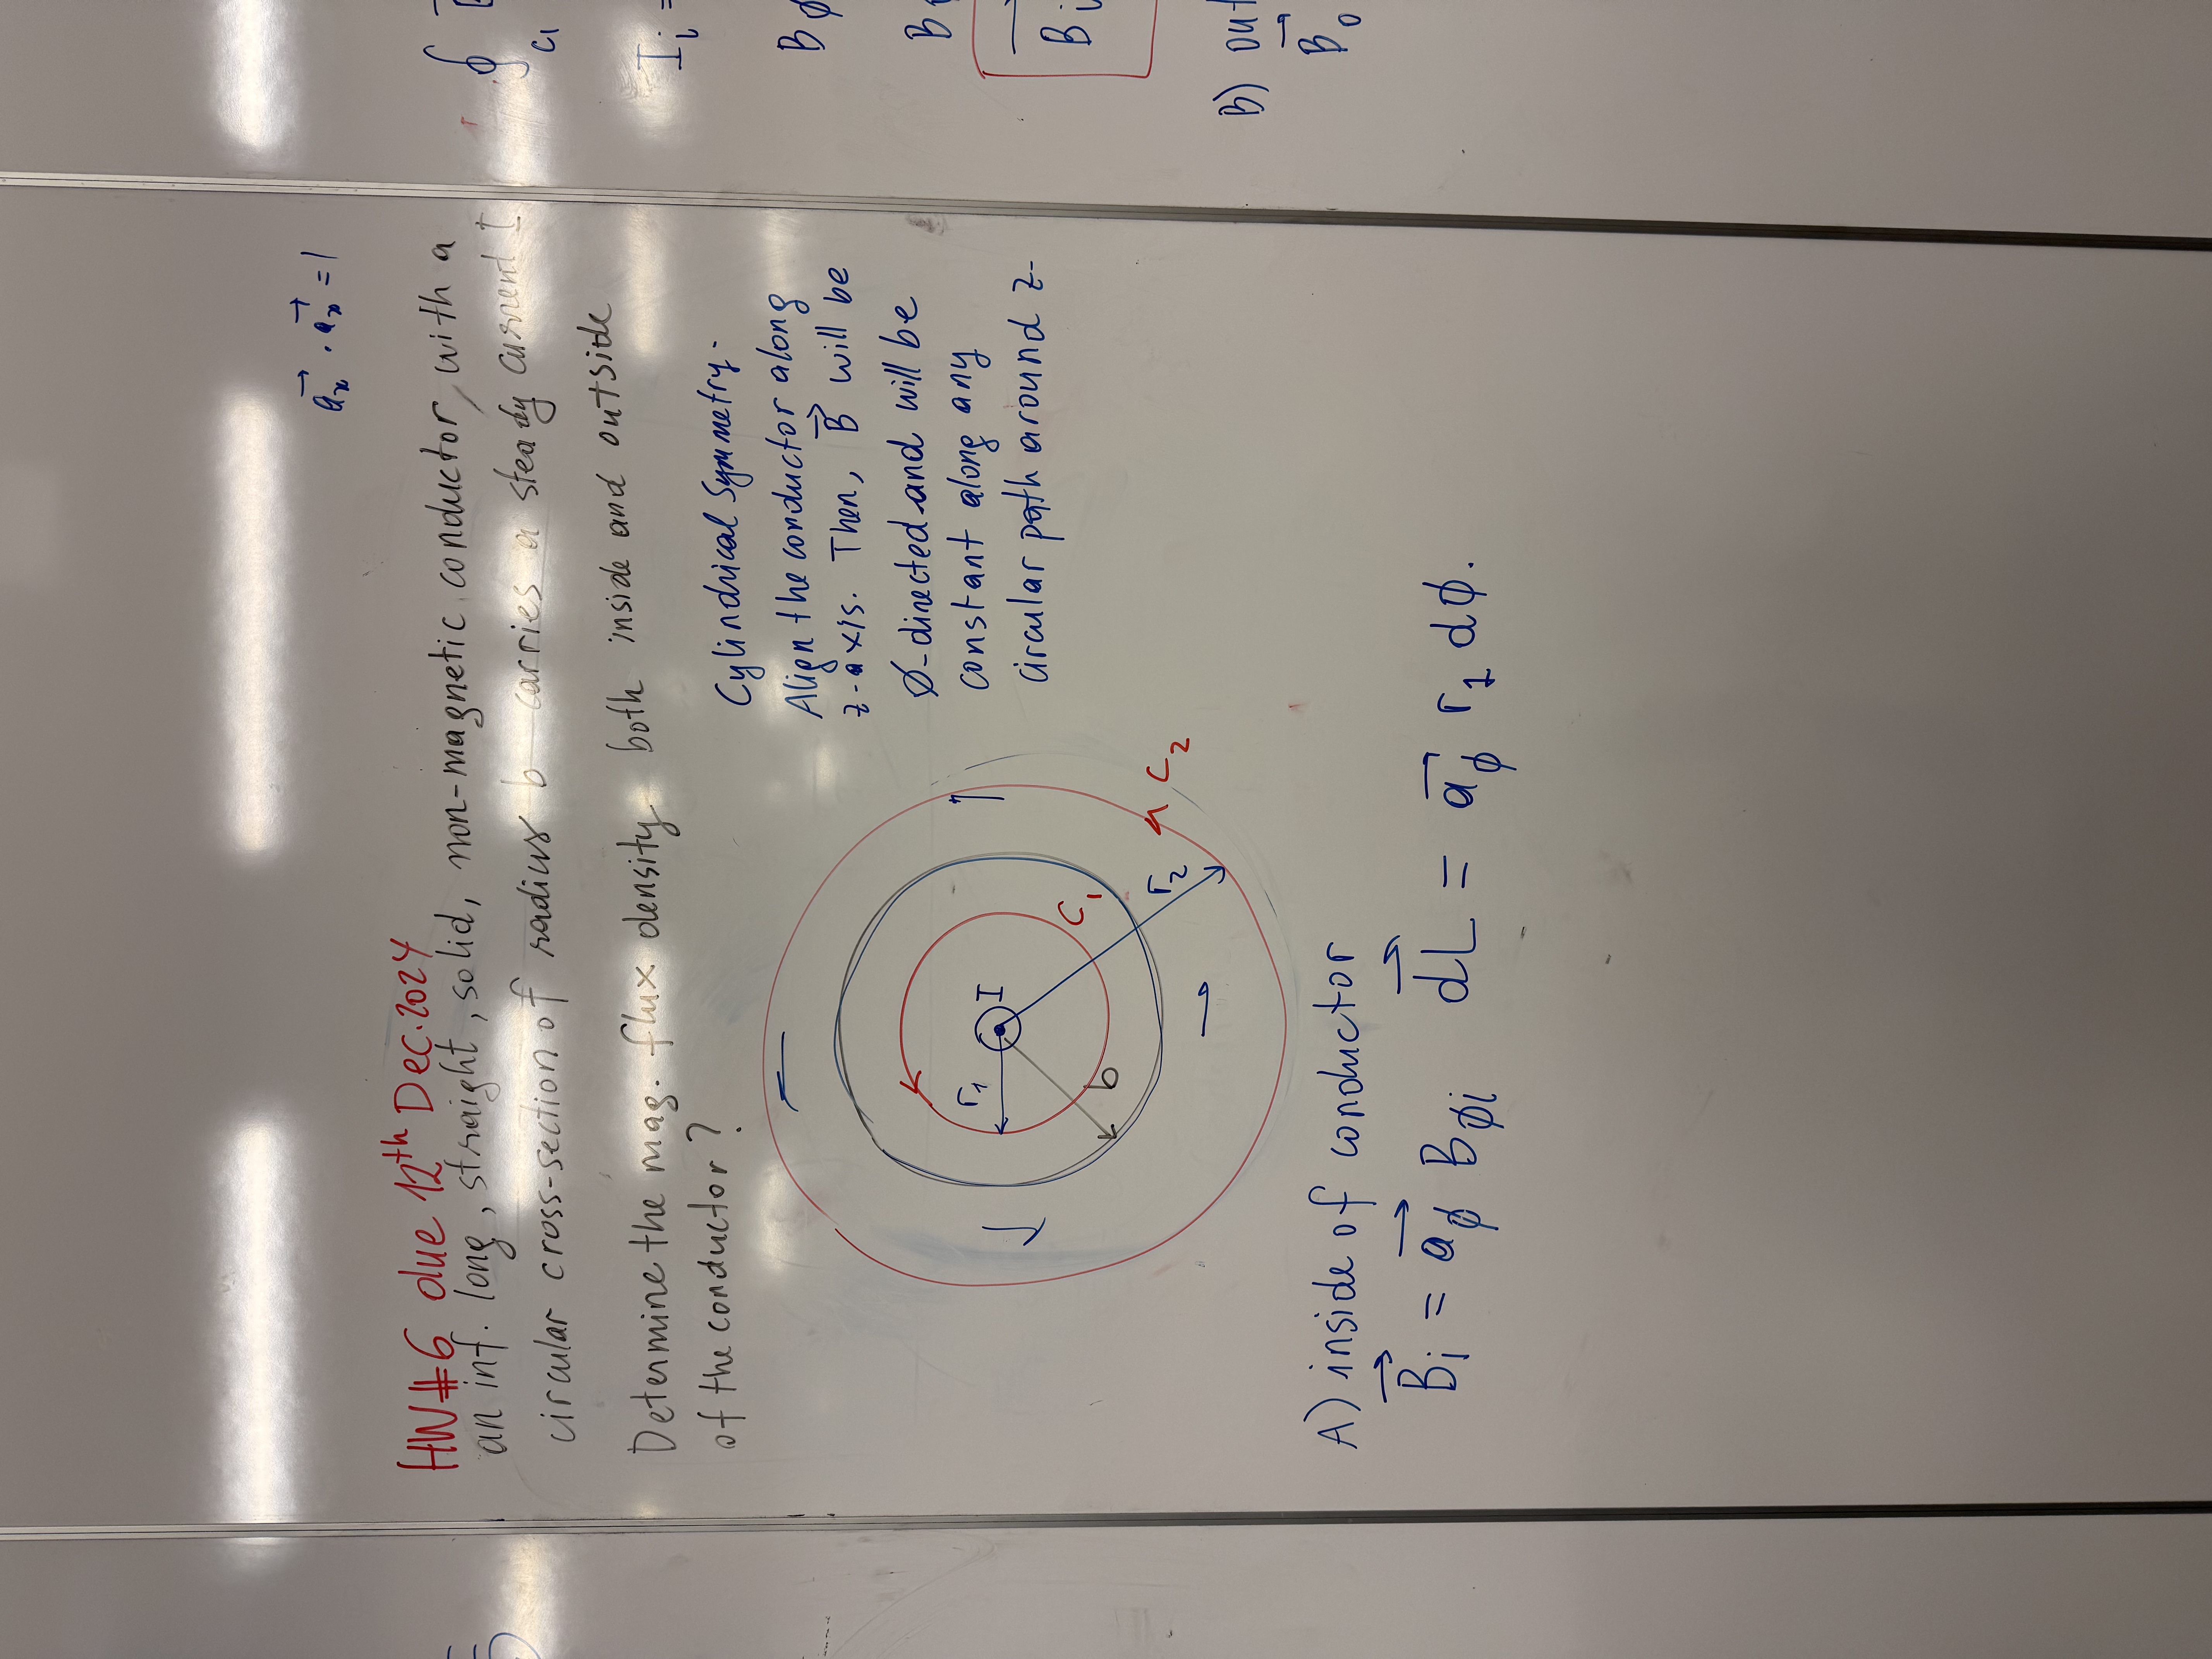 a⃗ₓ · a⃗ₓ = 1
HW#6 due 12th Dec. 2024
an inf. long, straight, solid, non-magnetic conductor, with a
circular cross-section of radius b carries a steady current I
Determine the mag. flux density both inside and outside
of the conductor?
Cylindrical Symmetry.
Align the conductor along
z-axis. Then, B⃗ will be
ø-directed and will be
constant along any
circular path around z-
I
r₁
b
C₁
r₂
C₂
A) inside of conductor
B⃗i = a⃗ϕ Bϕi dL⃗ = a⃗ϕ r₁ dϕ.
∮
C₁
Iᵢ =
Bϕ
B
B⃗i
B) out
B⃗o